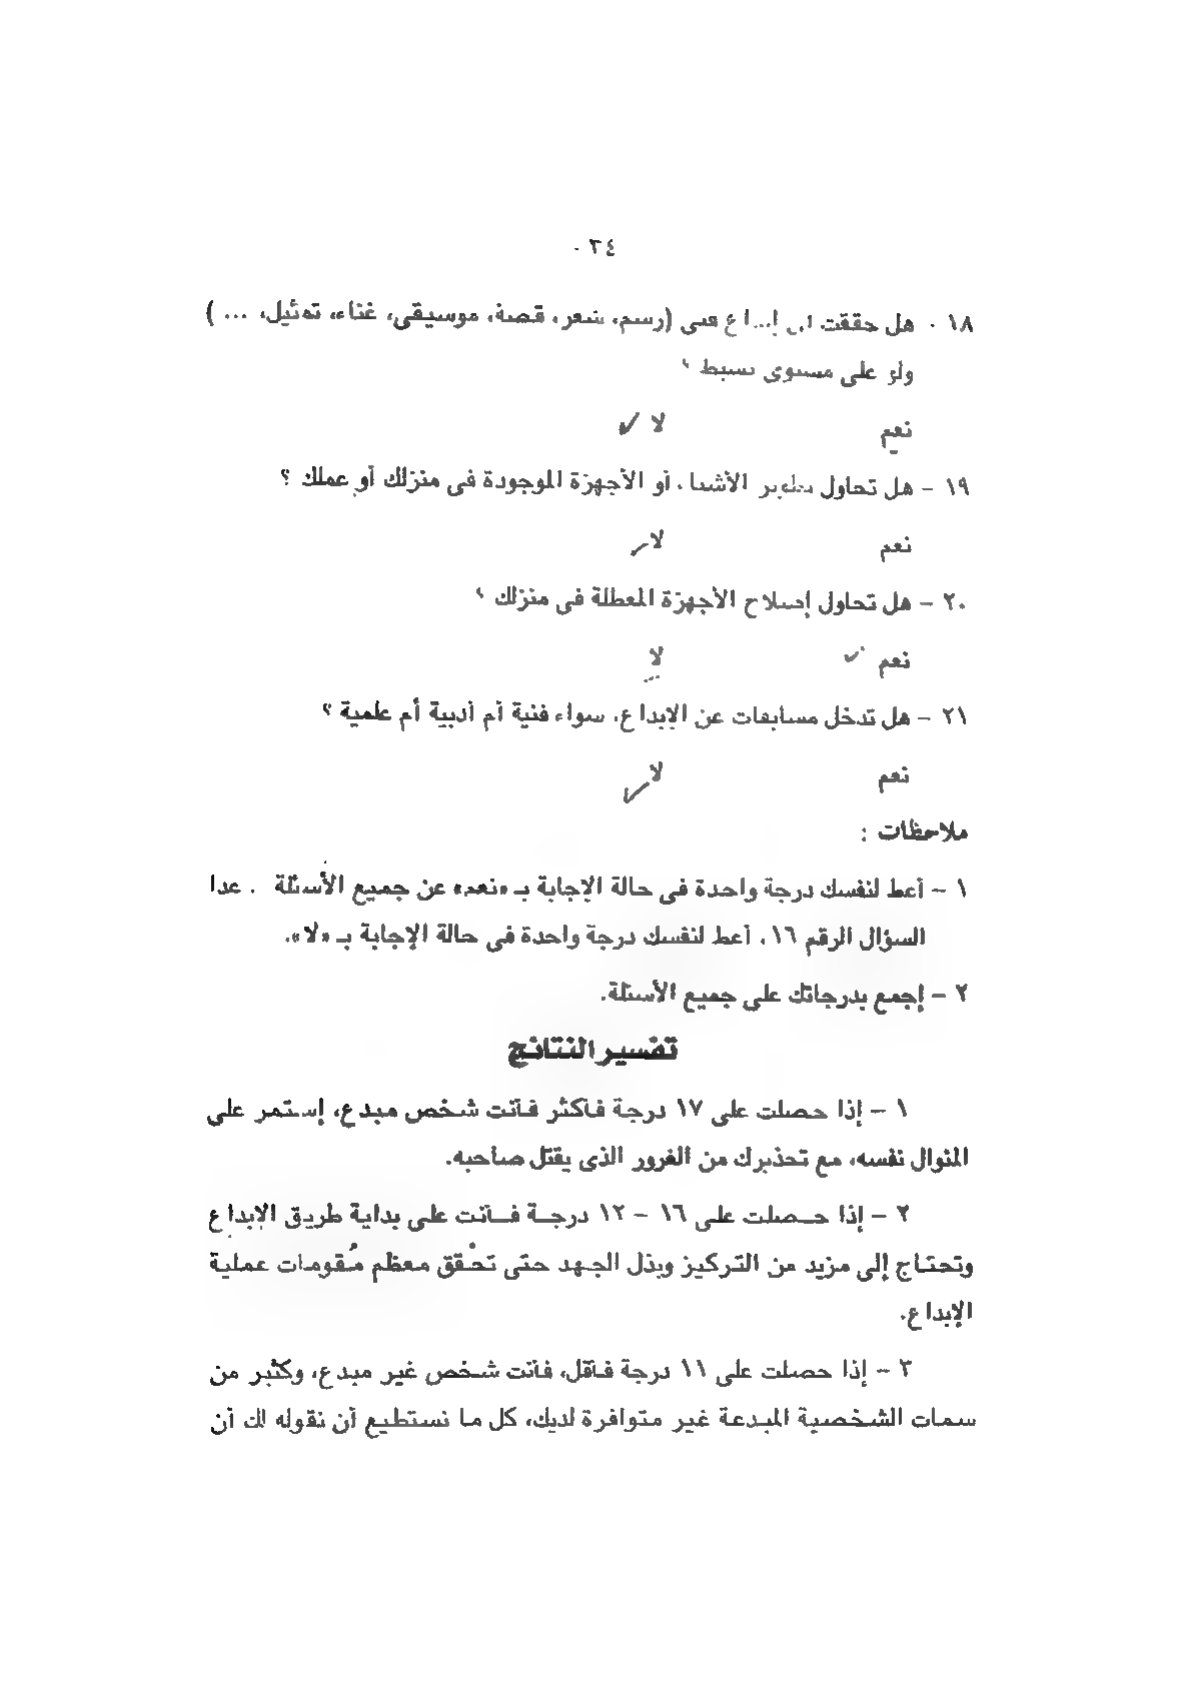 ٣٤
١٨ - هل حققت أى إبداع فنى (رسم، شعر، قصة، موسيقى، غناء، تمثيل، ... )
ولو على مستوى بسيط ؟
نعم لا ✓
١٩ – هل تحاول تطوير الأشياء أو الأجهزة الموجودة فى منزلك أو عملك ؟
نعم لا ✓
٢٠ – هل تحاول إصلاح الأجهزة المعطلة فى منزلك ؟
نعم ✓ لا
٢١ – هل تدخل مسابقات عن الإبداع، سواء فنية أم أدبية أم علمية ؟
نعم لا ✓
ملاحظات :
١ – أعط لنفسك درجة واحدة فى حالة الإجابة بـ «نعم» عن جميع الأسئلة . عدا
السؤال الرقم ١٦، أعط لنفسك درجة واحدة فى حالة الإجابة بـ «لا».
٢ – إجمع بدرجاتك على جميع الأسئلة.
تفسير النتائج
١ – إذا حصلت على ١٧ درجة فأكثر فأنت شخص مبدع، إستمر على
المنوال نفسه، مع تحذيرك من الغرور الذى يقتل صاحبه.
٢ – إذا حصلت على ١٦ – ١٢ درجة فأنت على بداية طريق الإبداع
وتحتاج إلى مزيد من التركيز وبذل الجهد حتى تحْقق معظم مُقومات عملية
الإبداع.
٣ – إذا حصلت على ١١ درجة فأقل، فأنت شخص غير مبدع، وكثير من
سمات الشخصية المبدعة غير متوافرة لديك، كل ما نستطيع أن نقوله لك أن